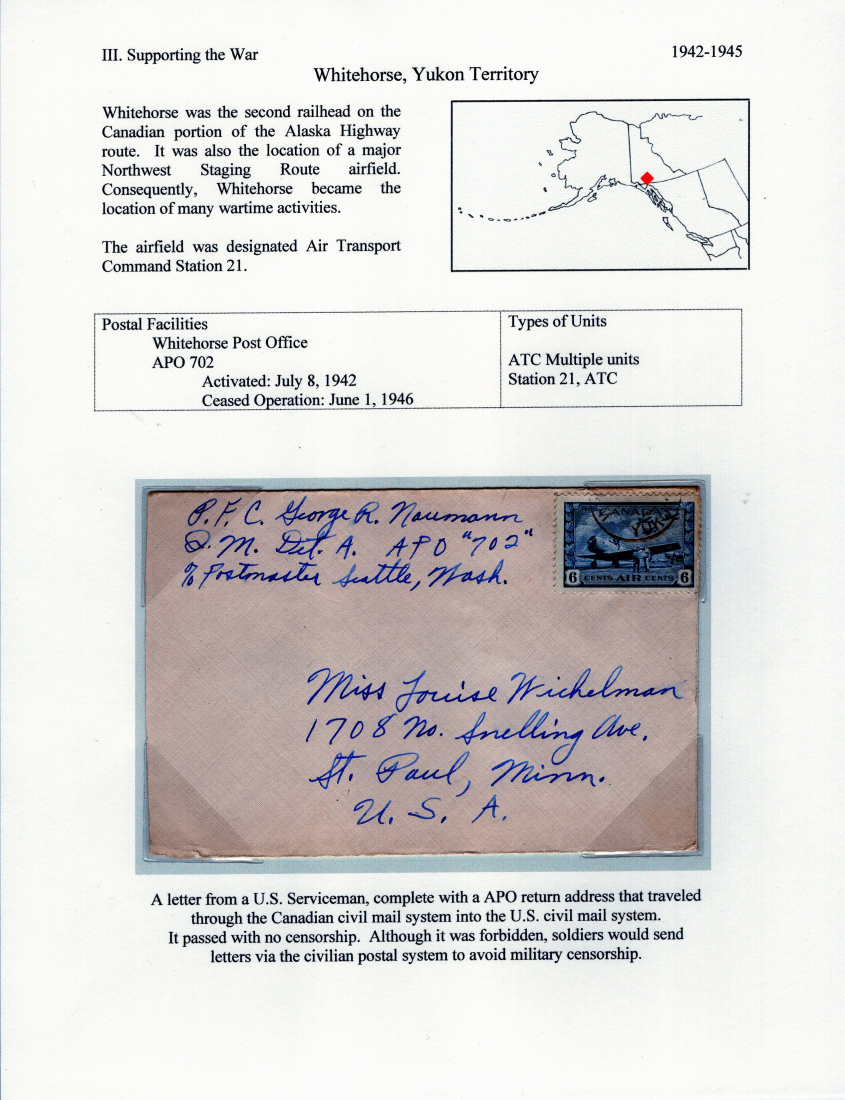 III. Supporting the War 1942-1945
Whitehorse, Yukon Territory
Whitehorse was the second railhead on the
Canadian portion of the Alaska Highway
route. It was also the location of a major
Northwest Staging Route airfield.
Consequently, Whitehorse became the
location of many wartime activities.
The airfield was designated Air Transport
Command Station 21.
Postal Facilities
Whitehorse Post Office
APO 702
Activated: July 8, 1942
Ceased Operation: June 1, 1946
Types of Units
ATC Multiple units
Station 21, ATC
P.F.C. George R. Naumann
Q.M. Det. A. APO "702"
% Postmaster Seattle, Wash.
CANADA
6 CENTS AIR CENTS 6
Miss Louise Wichelman
1708 No. Snelling Ave.
St. Paul, Minn.
U. S. A.
A letter from a U.S. Serviceman, complete with a APO return address that traveled
through the Canadian civil mail system into the U.S. civil mail system.
It passed with no censorship. Although it was forbidden, soldiers would send
letters via the civilian postal system to avoid military censorship.